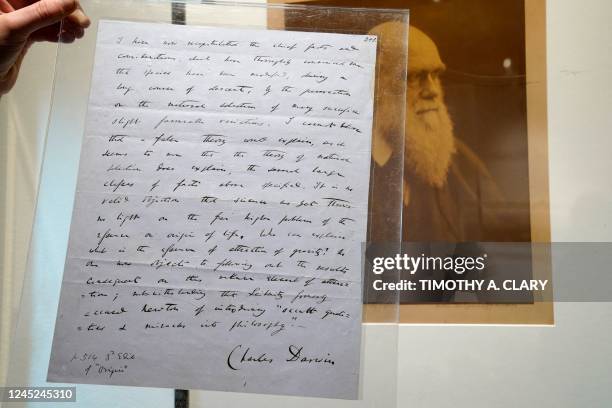 241
I have now recapitulated the chief facts and
considerations which have thoroughly convinced me
that species have been modified, during a
long course of descent, by the preservation
or the natural selection of many successive
slight favourable variations. I cannot believe
that a false theory would explain, as it
seems to me that the theory of natural
selection does explain, the several large
classes of facts above specified. It is no
valid objection that science as yet throws
no light on the far higher problem of the
essence or origin of life. Who can explain
what is the essence of attraction of gravity? No
one now objects to following out the results
consequent on this unknown element of attrac
-tion; notwithstanding that Leibnitz formerly
accused Newton of introducing "occult quali
-ties & miracles into philosophy".—
Charles Darwin
p. 514 3d Edit
of "Origin"
TIMOTHY A. CLARY
1245245310